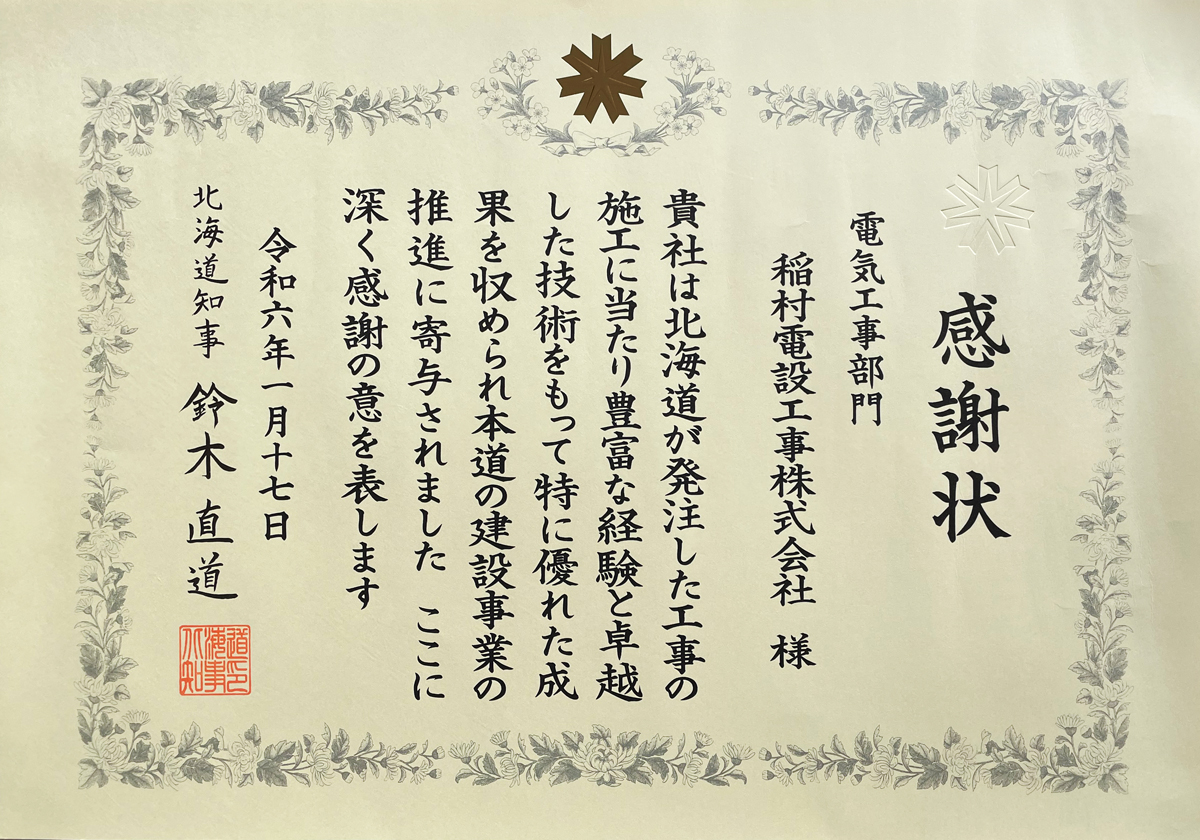 感謝状
電気工事部門
稲村電設工事株式会社 様
貴社は北海道が発注した工事の
施工に当たり豊富な経験と卓越
した技術をもって特に優れた成
果を収められ本道の建設事業の
推進に寄与されました ここに
深く感謝の意を表します
令和六年一月十七日
北海道知事 鈴木直道